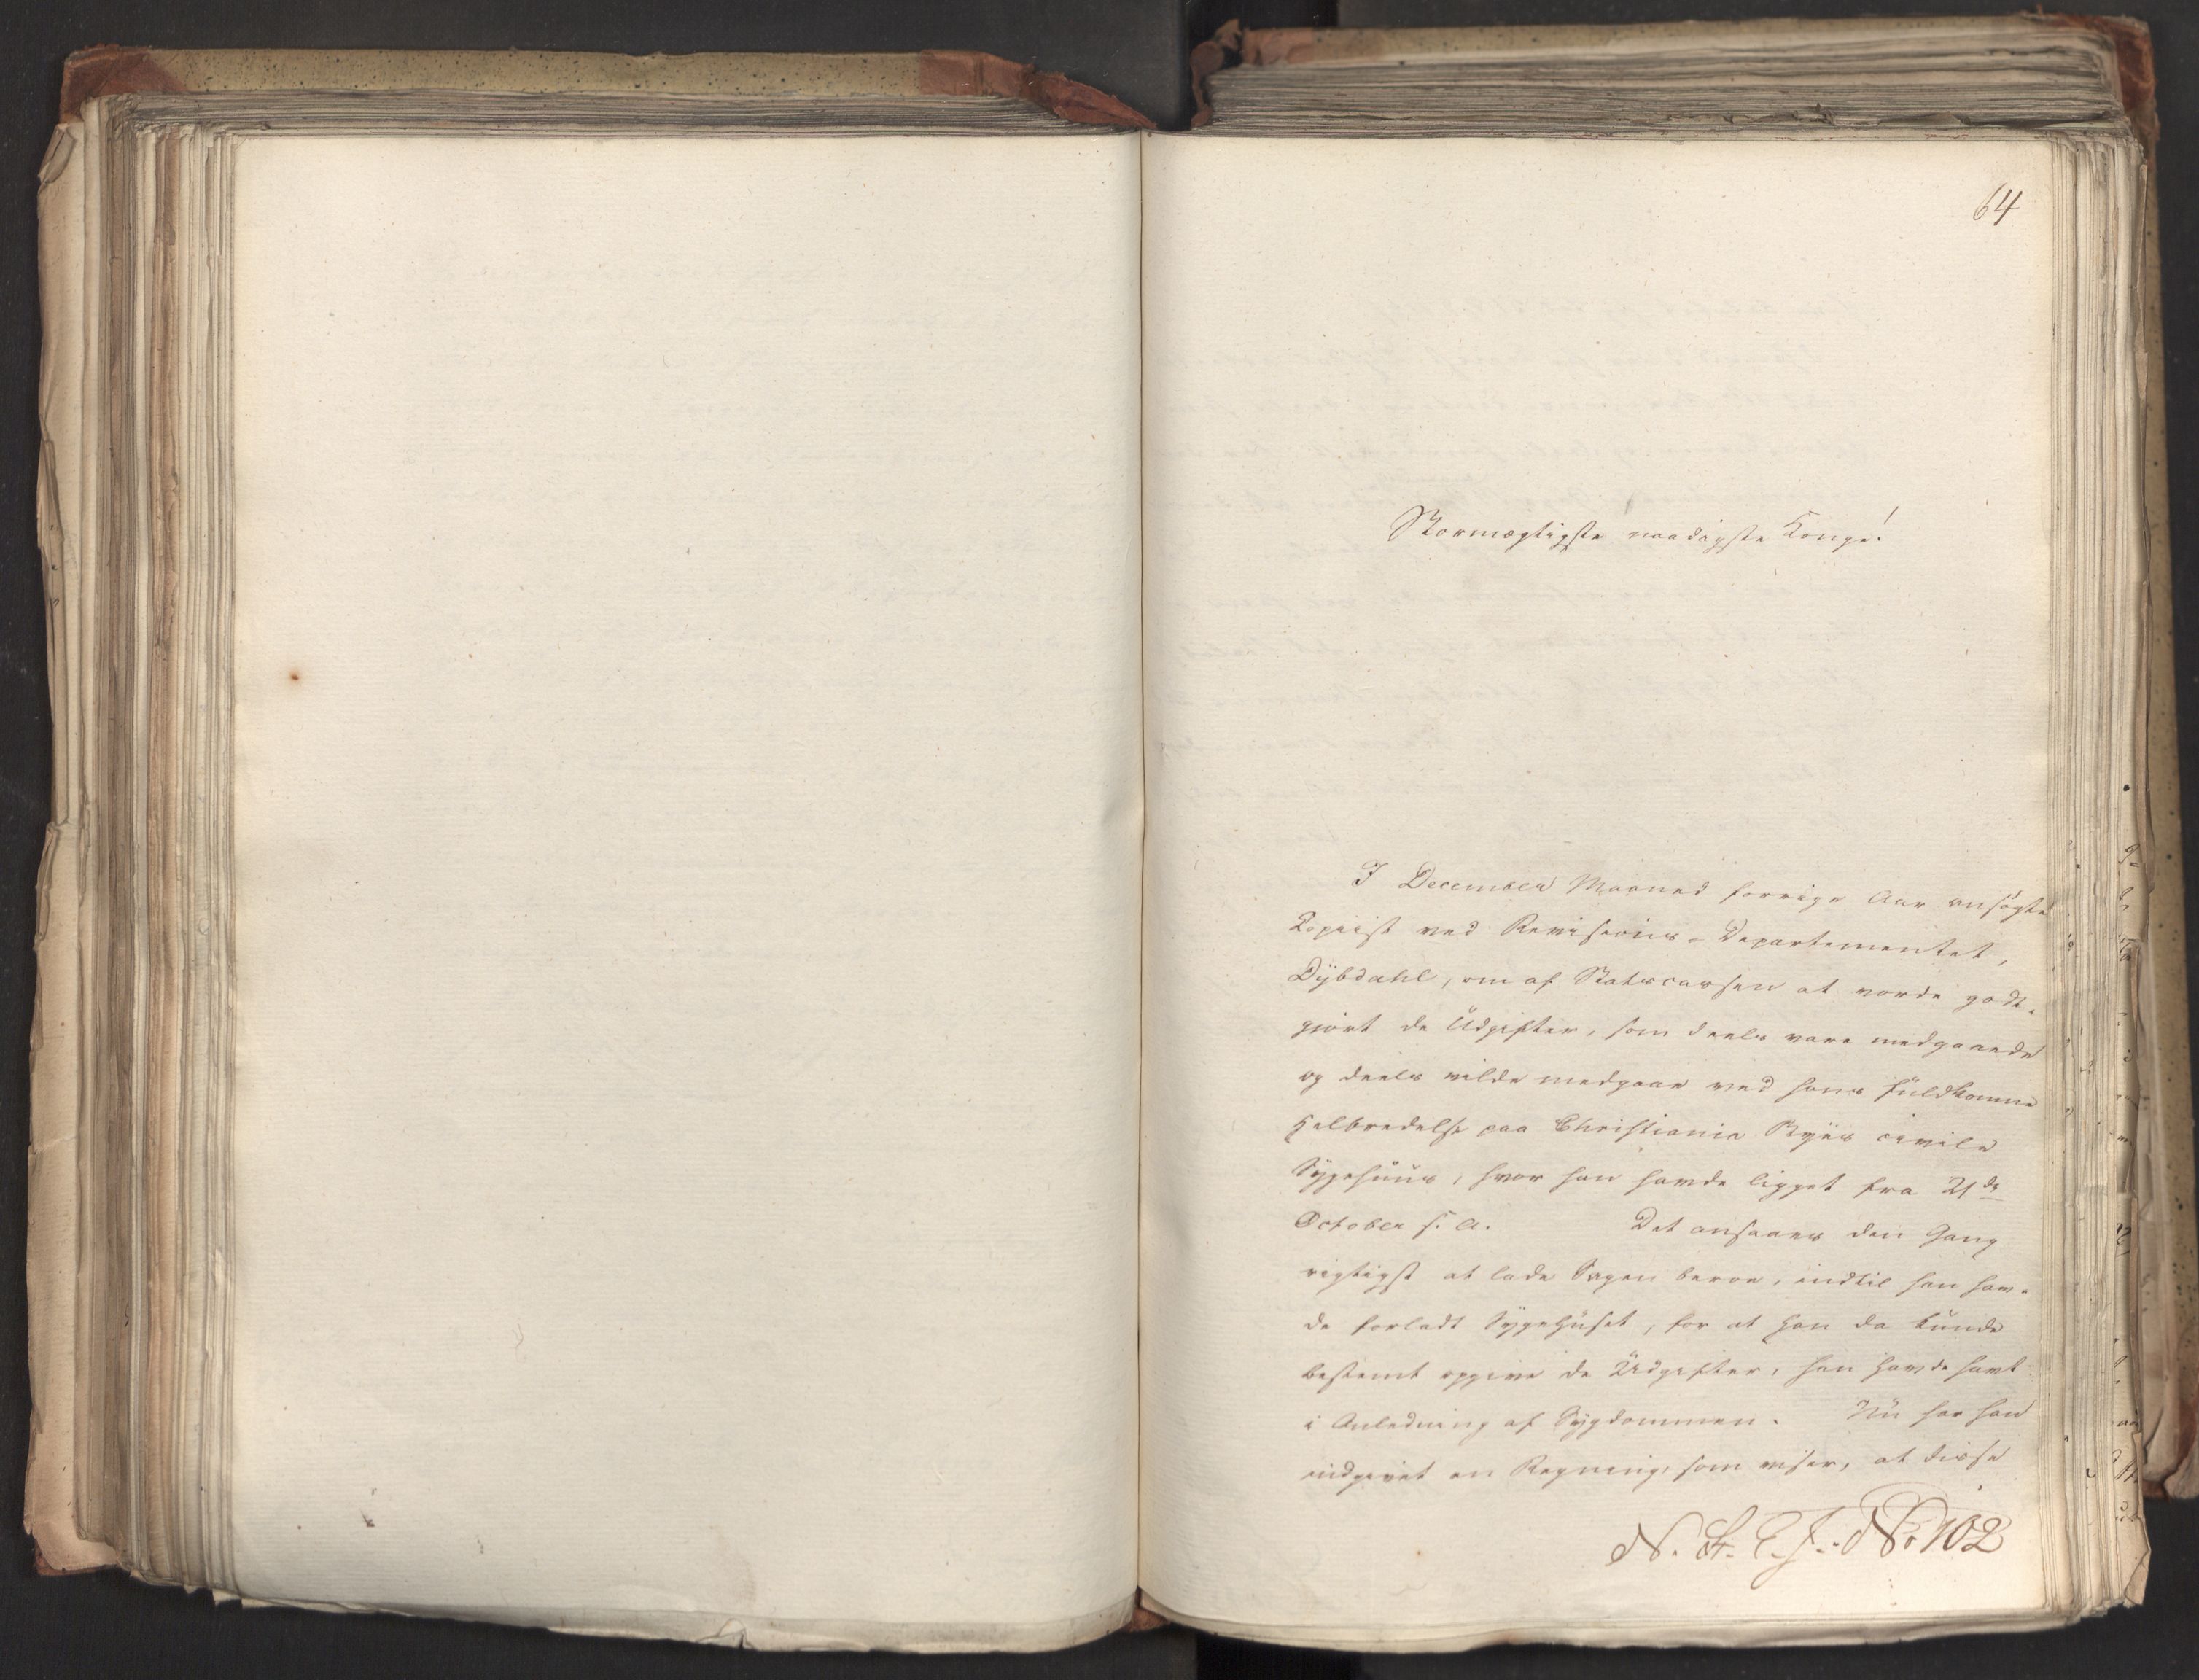 64
Stormægtigste naadigste Konge!
I December Maaned forrige Aar ansøgte
Copiist ved Revisions-Departementet,
Dÿbdahl, om af Statscassen at vorde godt-
giort de Udgifter, som deels vare medgaaede
og deels vilde medgaae ved hans fuldkomne
Helbredelse paa Christiania Byes civile
Sygehuus, hvor han havde ligget fra 21de
October s. A. Det ansaaes den Gang
rigtigst at lade Sagen beroe, indtil han hav-
de forladt Sygehuset, for at han da kunde
bestemt opgive de Udgifter, han havde havt
i Anledning af Sygdommen. Nu har han
indgivet en Regning, som viser, at disse
N. St. E. J. No 102